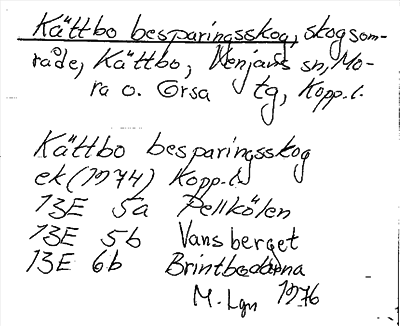 Kättbo besparingsskog, skogsom-
råde, Kättbo, Venjans sn, Mo-
ra o. Orsa tg, Kopp. l.
Kättbo besparingsskog
ek (1974) Kopp. l.
13E 5a Pellkölen
13E 5b Vansberget
13E 6b Brintbodarna
M. Lgn 1976